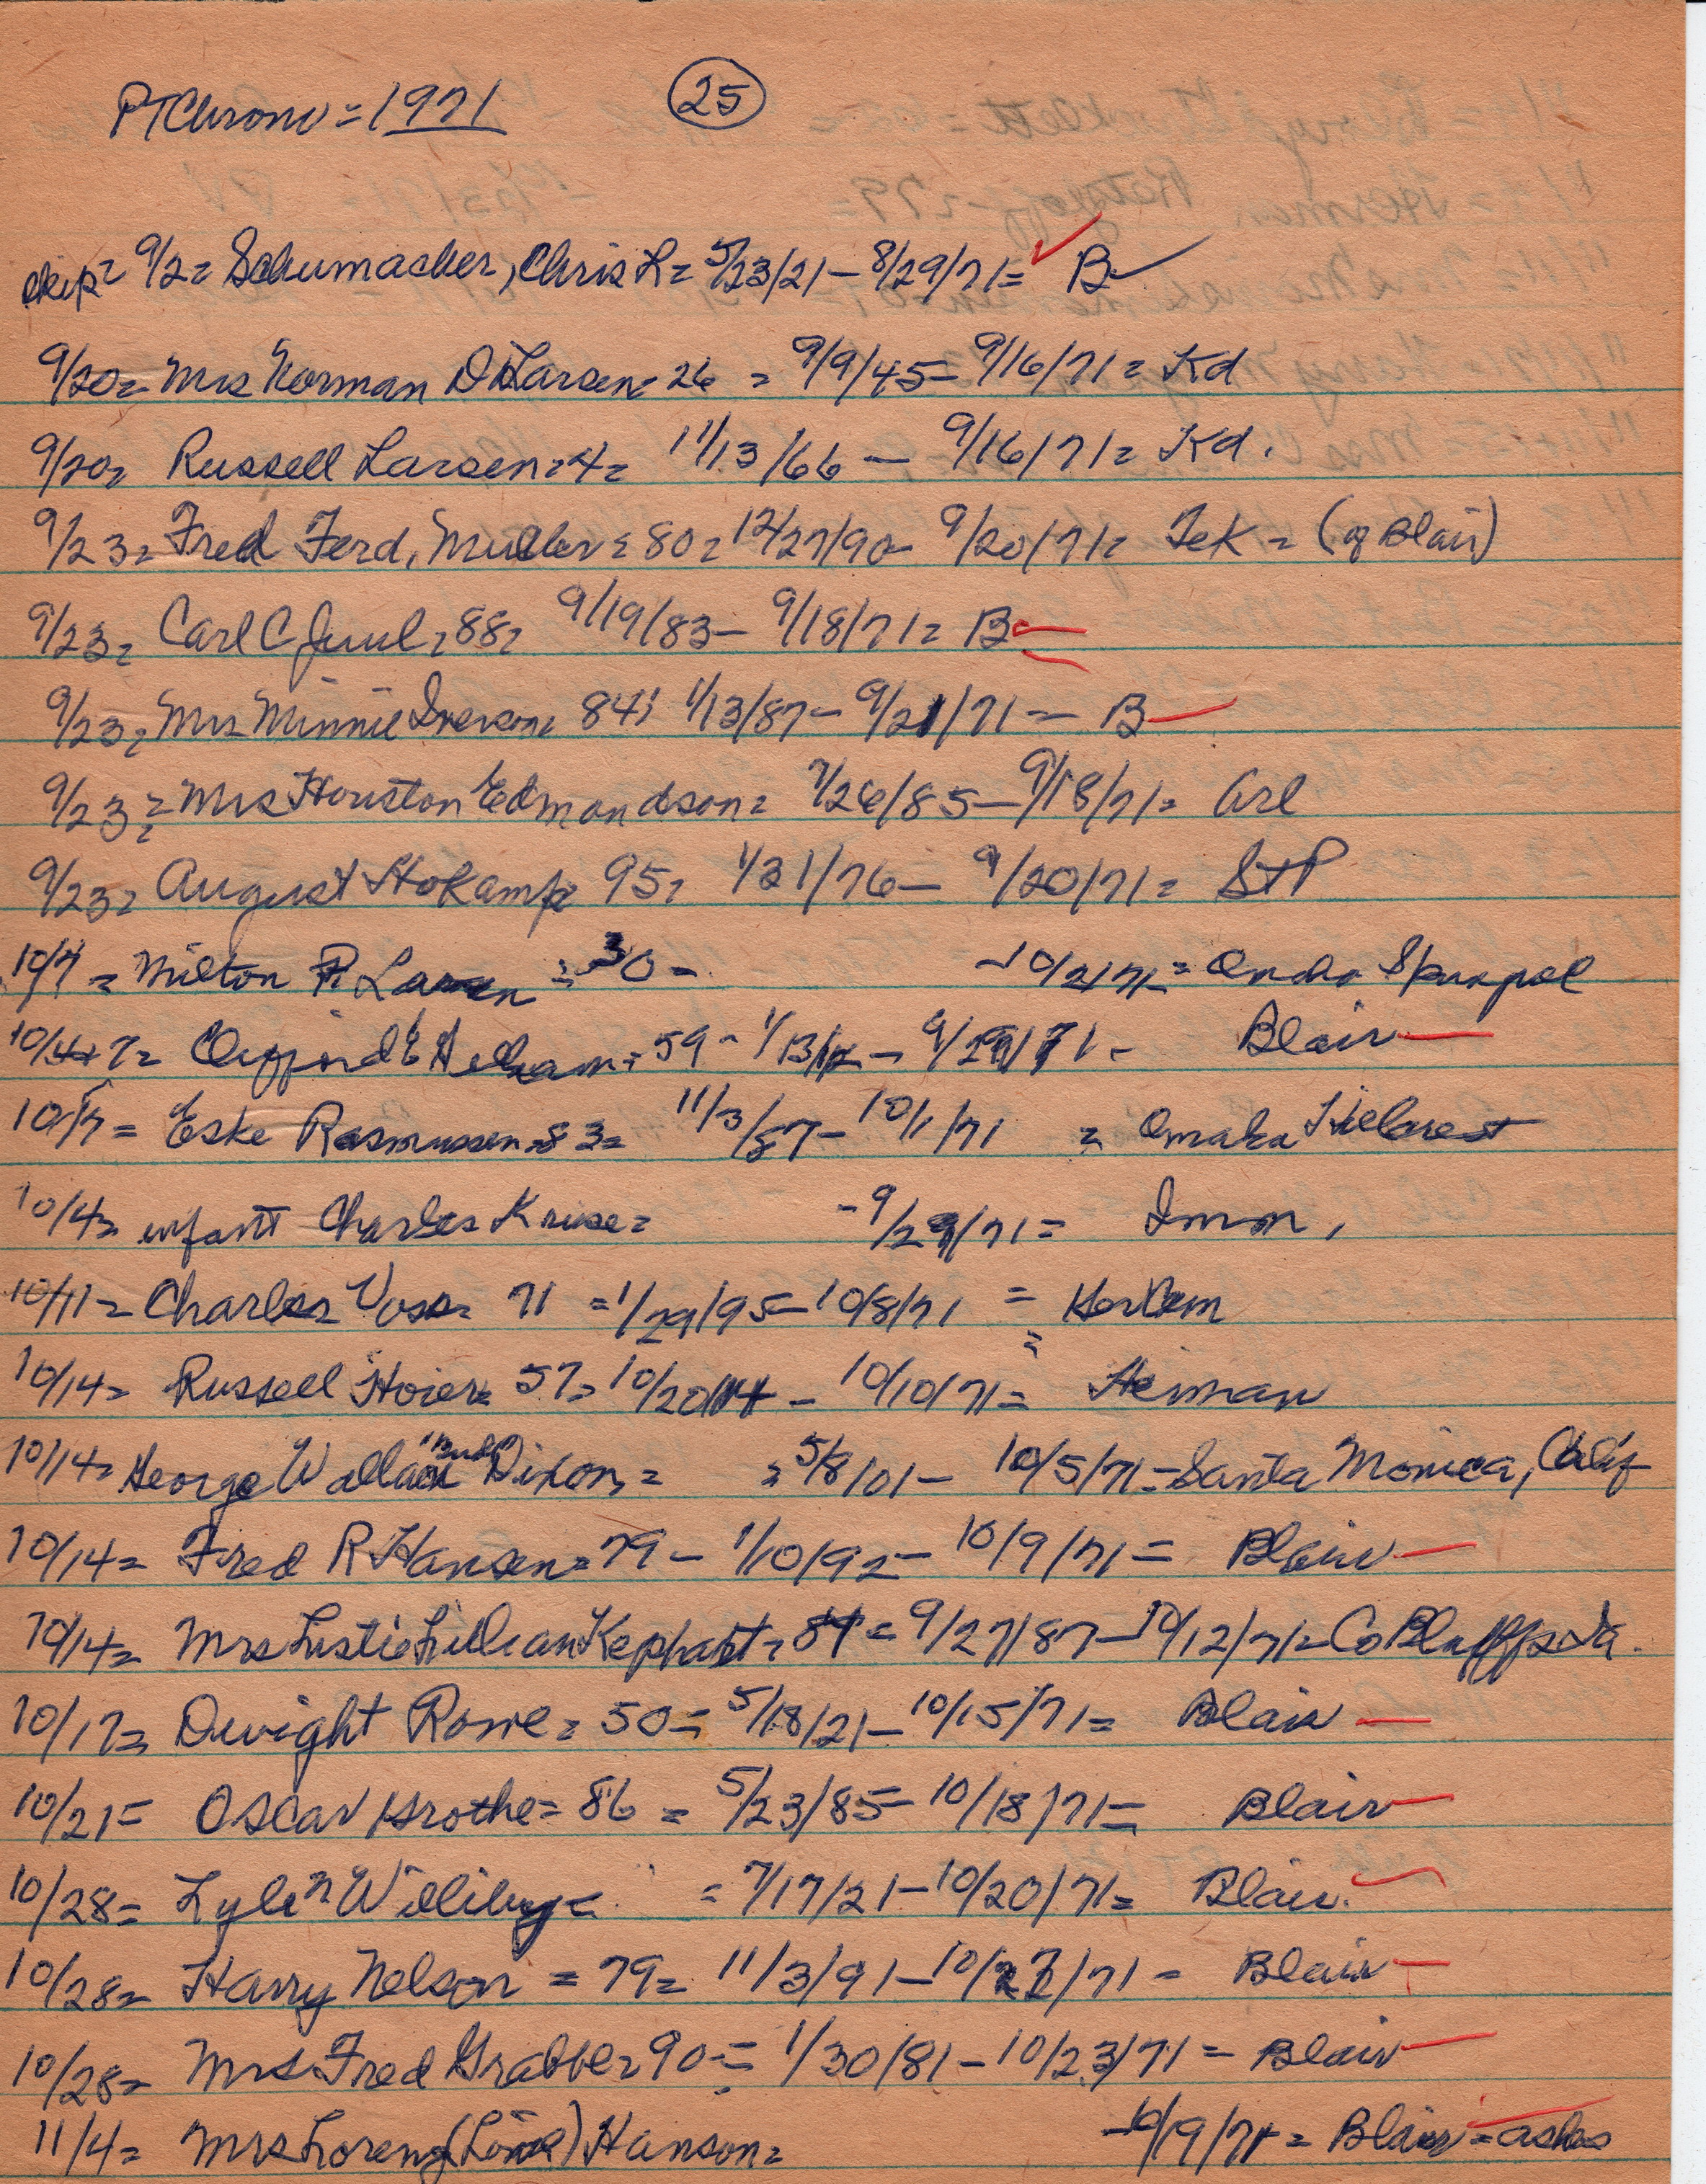 PT Chron = 1971 25
skip = 9/2 = Schumacher, Chris L = 5/23/21 - 8/29/71 = B
9/20 = Mrs Norman D Larsen = 26 = 9/9/45 - 9/16/71 = Kd
9/20 = Russell Larsen = 4 = 11/13/66 - 9/16/71 = Kd.
9/23 = Fred Ferd. Muller = 80 = 12/27/90 - 9/20/71 = Tek = (of Blair)
9/23 = Carl C Juul = 88 = 9/19/83 - 9/18/71 = B
9/23 = Mrs Minnie Iverson = 84 = 1/13/87 - 9/21/71 = B
9/23 = Mrs Houston Edmondson = 7/26/85 - 9/18/71 = Arl
9/23 = August Stokamp 95 = 1/31/76 - 9/20/71 = StP
10/7 = Milton R Larsen = 30 - - 10/2/71 =
10/4 + 7 = Clifford E = 59 - 1/13/12 - 9/29/71 - Blair
10/7 = Eske Rasmussen = 83 = 11/3/87 - 10/1/71 = Omaha Hillcrest
10/4 = infant Charles Kruse = - 9/29/71 = Imm.
10/11 = Charles Voss = 71 = 1/29/95 - 10/8/71 =
10/14 = Russell Hoier = 57 = 10/20/14 - 10/10/71 = Herman
10/14 = George Wallace "Bud" Dixon = = 5/8/01 - 10/5/71 = Santa Monica, Calif
10/14 = Fred R Hansen = 79 - 1/10/92 - 10/9/71 = Blair
10/14 = Mrs Lillian Kephart = 84 = 9/27/87 - 10/12/71 = Co Bluffs Ia.
10/17 = Dwight Rowe = 50 = 5/18/21 - 10/15/71 = Blair
10/21 = Oscar Grothe = 86 = 5/23/85 - 10/18/71 = Blair
10/28 = Lyle = 7/17/21 - 10/20/71 = Blair.
10/28 = Harry Nelson = 79 = 11/3/91 - /71 = Blair
10/28 = Mrs Fred Grabbe = 90 = 1/30/81 - 10/23/71 = Blair
11/4 = Mrs Lorenz Hanson = - 10/19/71 = Blair = ashes